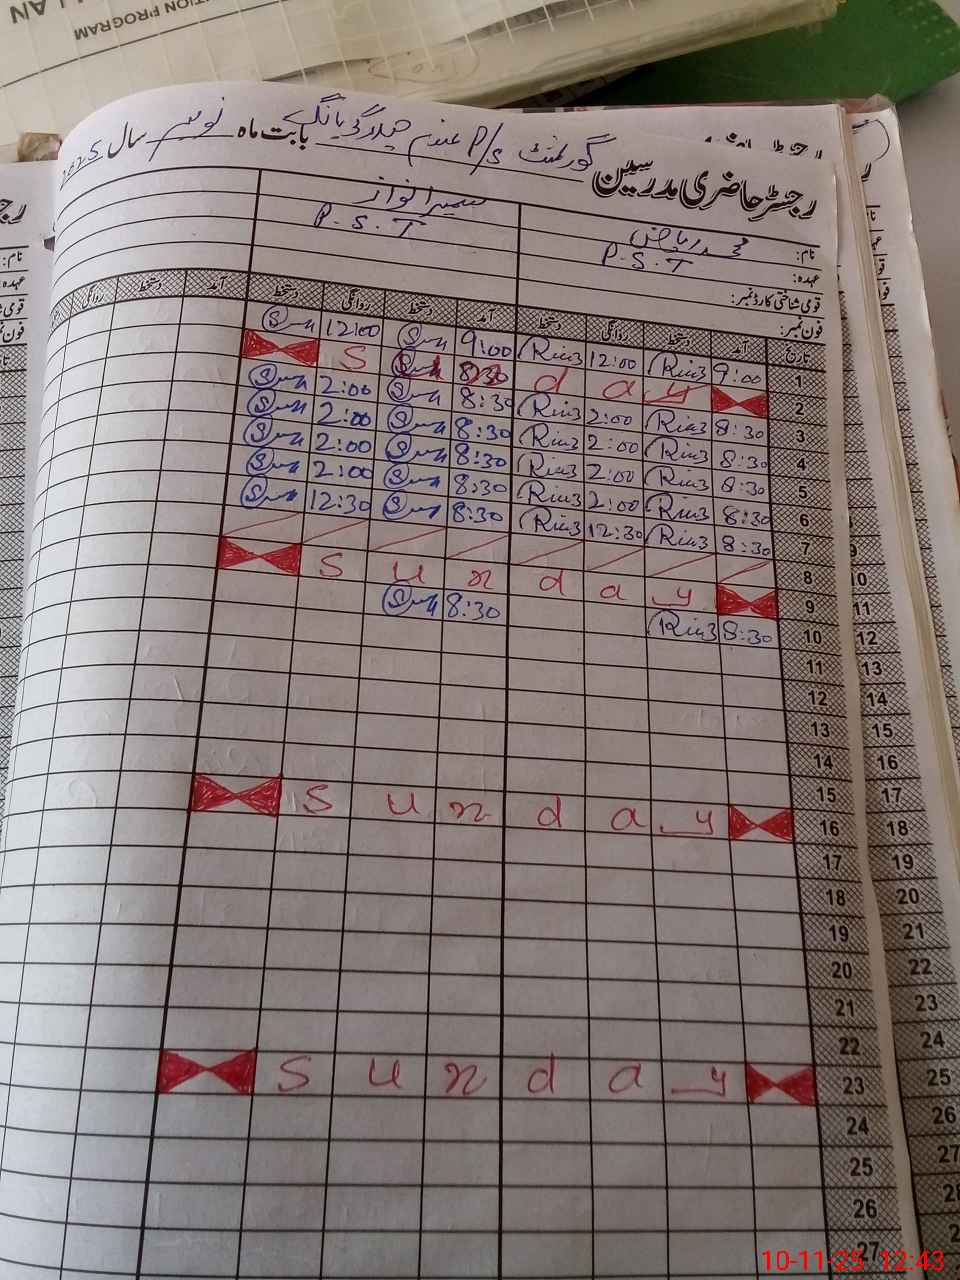 ION PROGRAM
LAN
رجسٹر حاضری مدرسین گورنمنٹ P/S بابت ماہ نومبر سال 2025
نام: محمد ریاض سمیرا نواز
عہدہ: P.S.T P.S.T
قومی شناختی کارڈ نمبر:
فون نمبر:
تاریخ آمد دستخط روانگی دستخط آمد دستخط روانگی دستخط آمد دستخط روانگی
1 9:00 Riaz 12:00 Riaz 9:00 12:00
2 S u n d a y 8:30
3 8:30 Riaz 2:00 Riaz 8:30 2:00
4 8:30 Riaz 2:00 Riaz 8:30 2:00
5 8:30 Riaz 2:00 Riaz 8:30 2:00
6 8:30 Riaz 2:00 Riaz 8:30 2:00
7 8:30 Riaz 12:30 Riaz 8:30 12:30
8
9 S u n d a y
10 8:30 Riaz 8:30
11
12
13
14
15
16 S u n d a y
17
18
19
20
21
22
23 S u n d a y
24
25
26
27
9
10
11
12
13
14
15
16
17
18
19
20
21
22
23
24
25
26
27
10-11-25 12:43